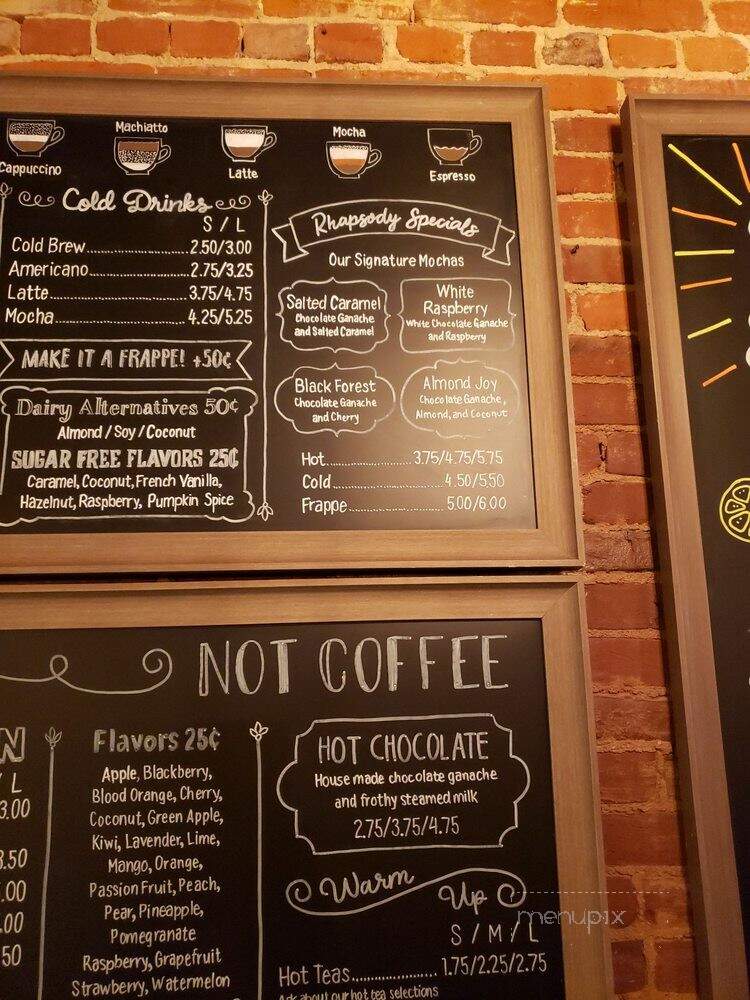 Machiatto
Mocha
Cappuccino
Latte
Espresso
Cold Drinks
S / L
Cold Brew 2.50/3.00
Americano 2.75/3.25
Latte 3.75/4.75
Mocha 4.25/5.25
MAKE IT A FRAPPE! +50¢
Dairy Alternatives 50¢
Almond / Soy / Coconut
SUGAR FREE FLAVORS 25¢
Caramel, Coconut, French Vanilla,
Hazelnut, Raspberry, Pumpkin Spice
Rhapsody Specials
Our Signature Mochas
Salted Caramel
Chocolate Ganache
and Salted Caramel
White
Raspberry
White Chocolate Ganache
and Raspberry
Black Forest
Chocolate Ganache
and Cherry
Almond Joy
Chocolate Ganache,
Almond, and Coconut
Hot 3.75/4.75/5.75
Cold 4.50/5.50
Frappe 5.00/6.00
NOT COFFEE
N
/ L
3.00
3.50
.00
.00
50
Flavors 25¢
Apple, Blackberry,
Blood Orange, Cherry,
Coconut, Green Apple,
Kiwi, Lavender, Lime,
Mango, Orange,
Passion Fruit, Peach,
Pear, Pineapple,
Pomegranate
Raspberry, Grapefruit
Strawberry, Watermelon
HOT CHOCOLATE
House made chocolate ganache
and frothy steamed milk
2.75/3.75/4.75
Warm Up
S / M / L
Hot Teas 1.75/2.25/2.75
Ask about our hot tea selections
menupix